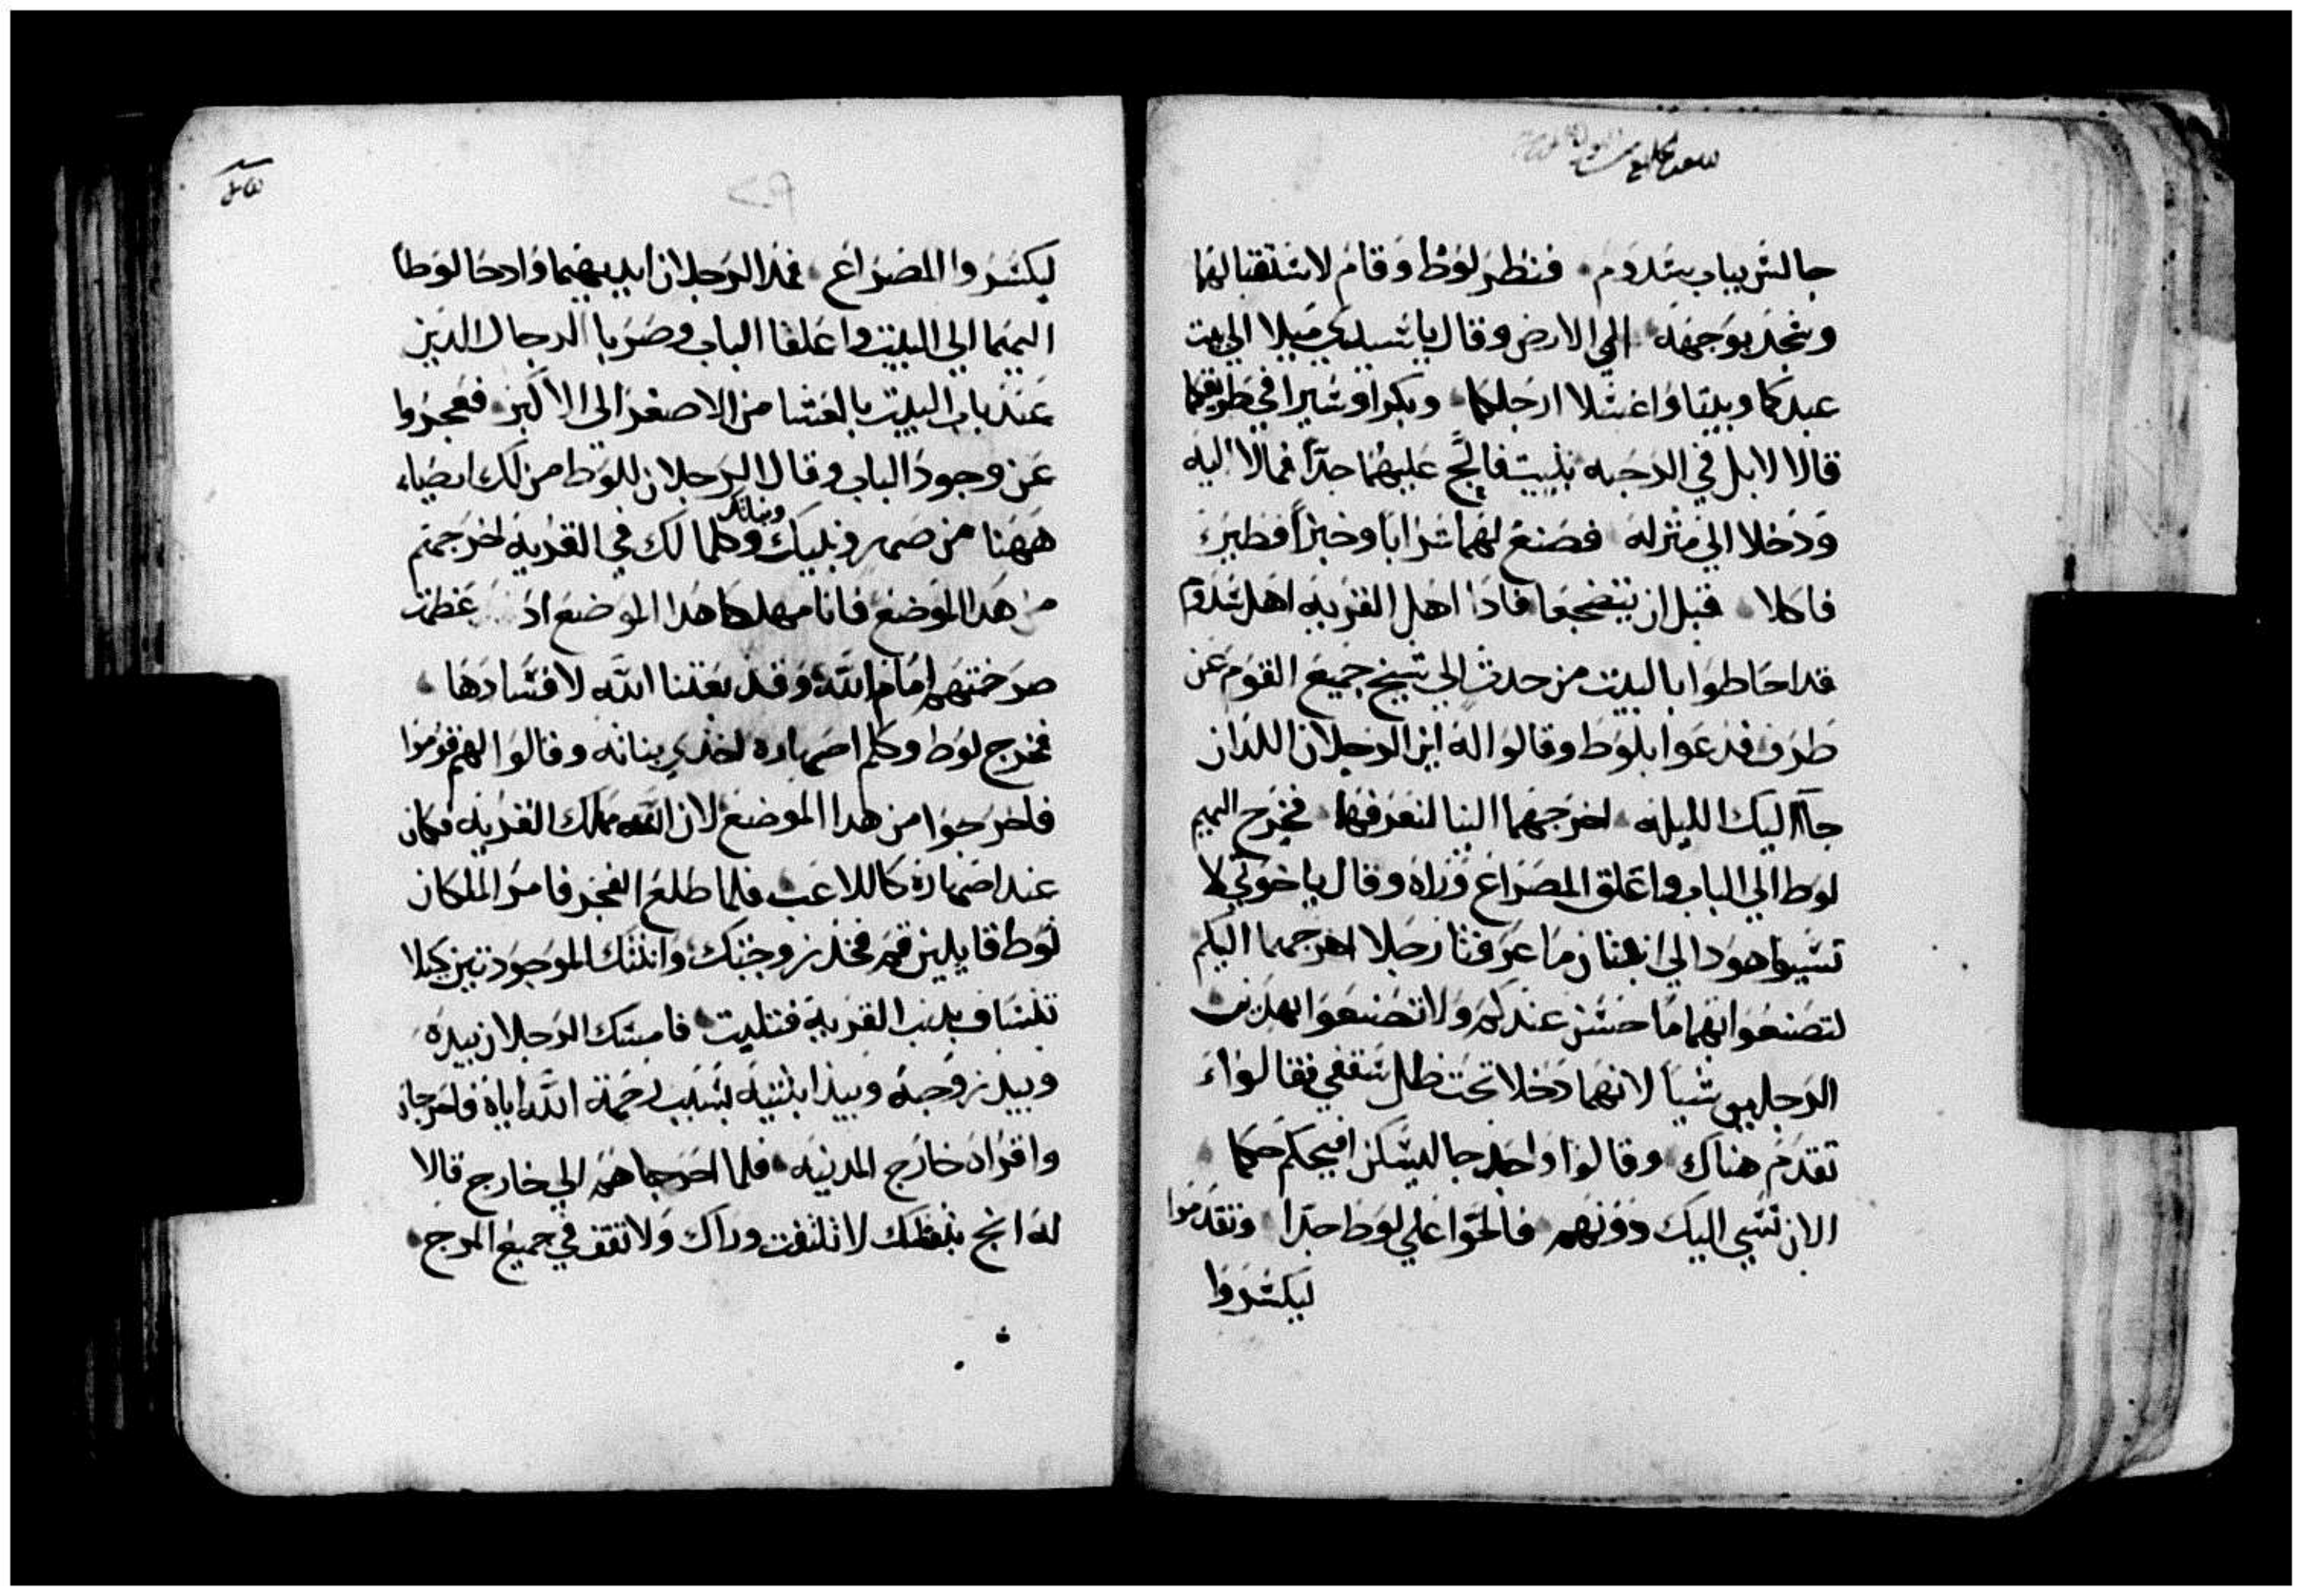 جالس بباب سدوم فنظر لوط وقام لاستقبالهما
وسجد بوجهه الي الارض وقال يا سيدي ميلا الي بيت
عبدكما وبيتا واغسلا ارجلكما وبكرا وسيرا في طريقكما
قالا لا بل في الرحبه نبيت فالج عليهما جداً فمالا اليه
ودخلا الي منزله فصنع لهما شرابا وخبزاً فطير
فاكلا قبل ان ينضجعا فاذا اهل القريه اهل سدوم
قد احاطوا بالبيت من حدث الي شيخ جميع القوم عن
طرف فدعوا بلوط وقالوا له اين الرجلان اللذان
جاآ اليك الليله اخرجهما الينا لنعرفهما فخرج اليهم
لوط الي الباب واغلق المصراع وراه وقال يا خوتي لا
تسيوا هودا لي ابنتان ما عرفتا رجلا اخرجهما اليكم
لتصنعوا بهما ما حسن عندكم ولا تصنعوا بهدين
الرجلين شيا لانهما دخلا تحت ظل سقفي فقالوا
تقدم هناك وقالوا واحد جا ليسكن افيحكم حكما
الان نسي اليك دونهم فالحوا علي لوط جدا وتقدموا
ليكسروا
ليكسروا المصراع فمد الرجلان ايديهما وادخا لوطا
اليهما الي البيت واغلقا الباب وضربا الرجال الدين
عند باب البيت بالعشا من الاصغر الي الاكبر فعجزوا
عن وجود الباب وقال الرجلان للوط من لك ايضا
ههنا من صهر وبنيك وبناتك وكلما لك في القريه اخرجهم
من هدا الموضع فانا مهلكا هدا الموضع اد عظمت
صرختهم امام الله وقد بعتنا الله لافسادها
فخرج لوط وكلم اصهاره اخدي بناته وقالوا لهم قوموا
فاخرجوا من هدا الموضع لان الله مهلك القريه فكان
عند اصهاره كاللاعب فلما طلع الفجر فامر الملكان
لوط قايلين قم فخد زوجتك وابنتك الموجودتين كيلا
تنساف بدنب القرية فتلبت فامسك الرجلان بيده
وبيد زوجته وبيد ابنتيه بسبب رحمة الله اياه فاخرجاه
واقراه خارج المدينه فلما اخرجاهم الي خارج قالا
له انج بنفسك لا تلتفت وراك ولا تقف في جميع المرج